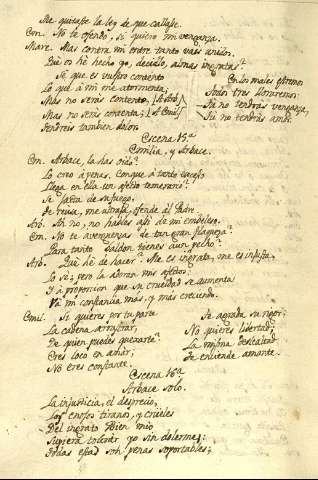 Me quitase la ley de que callase.
Em. No te ofendo, si quiero mi venganza.
Mas contra mi entre tanto vais unidos.
Que os he hecho yo, decidlo, almas ingratas?
Sé, que es vuestro contento
Lo que á mi me atormenta;
Mas no serás contento, (A Arb.)
Mas no serás contenta; (A Emil.)
Tendreis tambien dolor.
En los males estremos
Todos tres lloraremos:
Tu no tendrás venganza,
Tu no tendrás amor.
Escena 15ª
Emilia, y Arbace.
Em. Arbace, la has oido?
Lo creo á penas. Conque á tanto exceso
Llega en ella un afecto temerario?
Se jacta de su fuego.
Te reusa, me ofende al Padre.
Arb. Ah no, no hables asi de mi embeleso.
Em. No te averguenzas de tan gran flaqueza?
Para tanto baldon tienes aun pecho?
Arb. Qué hé de hacer? Me es ingrata, me es infiel,
Lo sé; pero la adoran mis afectos:
Y á proporcion que su crueldad se aumenta
Vá mi constancia mas, y mas creciendo.
Emil. Si quieres por tu parte
La cadena arrastrar,
De quien puedes quexarte?
Eres loco en amar;
No eres constante.
Te agrada su rigor;
No quieres libertad;
La misma deslealtad
Te enciende amante.
Escena 16ª
Arbace solo.
La injusticia, el desprecio,
Los enojos tiranos, y crueles
Del ingrato Bien mio
Supiera tolerar yo sin dolerme:
Todas estas son penas soportables;